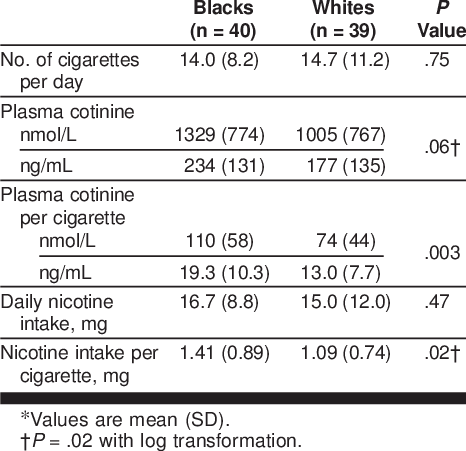 Blacks Whites P
(n = 40) (n = 39) Value
No. of cigarettes 14.0 (8.2) 14.7 (11.2) .75
per day
Plasma cotinine
nmol/L 1329 (774) 1005 (767)
.06†
ng/mL 234 (131) 177 (135)
Plasma cotinine
per cigarette
nmol/L 110 (58) 74 (44)
.003
ng/mL 19.3 (10.3) 13.0 (7.7)
Daily nicotine 16.7 (8.8) 15.0 (12.0) .47
intake, mg
Nicotine intake per 1.41 (0.89) 1.09 (0.74) .02†
cigarette, mg
*Values are mean (SD).
†P = .02 with log transformation.